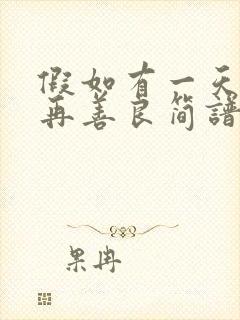 假如有一天
再善良简谱
果冉